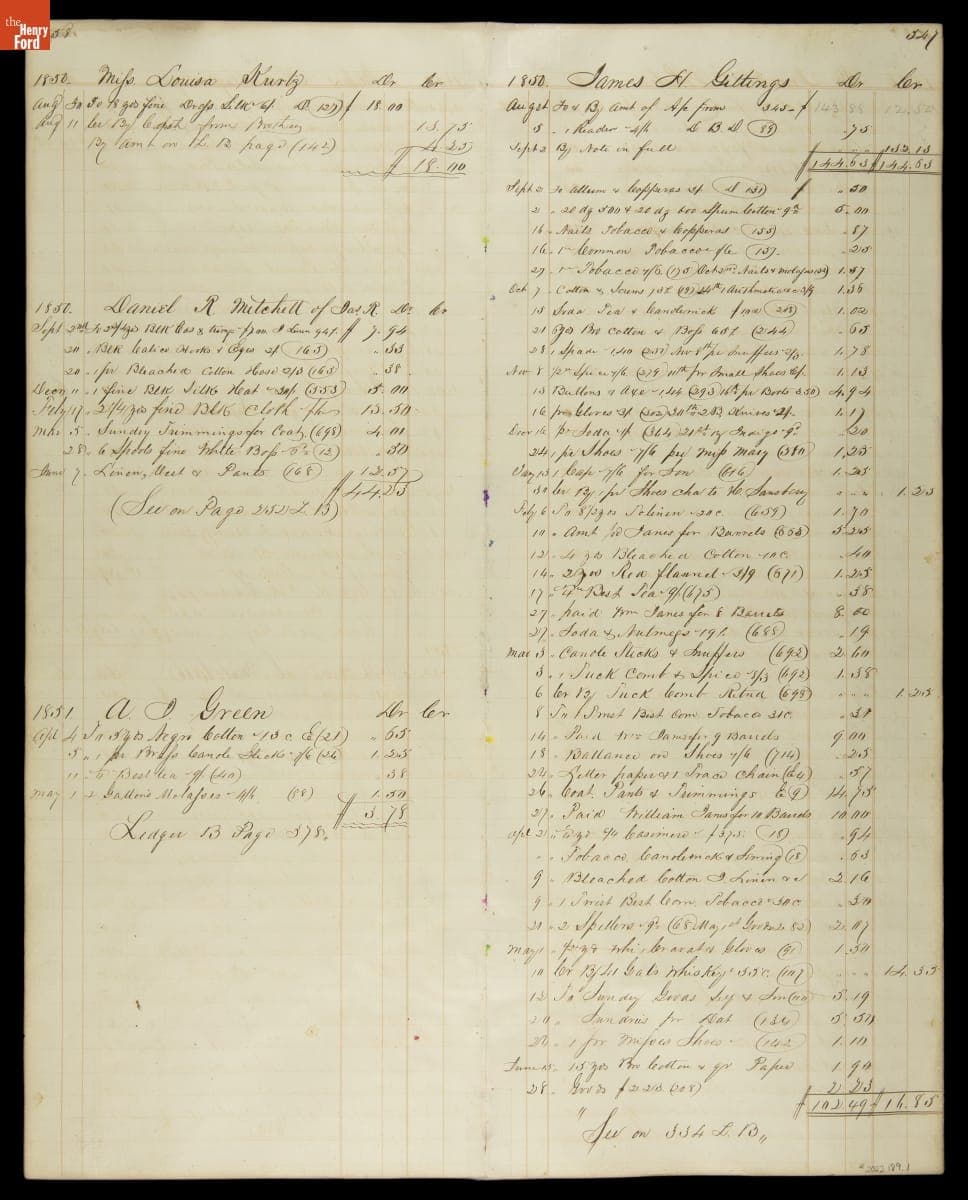 the Henry Ford
1850. Miss Louisa Kurtz Dr Cr
Aug 30 To 18 yds fine Dress Silk 6/ D 127) $ 18.00
Aug 11 Cr By Cash from Brother 13.75
By amt on the B page (142) 4.25
$ 18.00
1850. Daniel R Mitchett of Jas R. Dr Cr
Sept $ 7.94
20 " Blk Calico Hooks & Eyes 2/ (163) " 33
20 " 1 pr Bleached Cotton Hose 2/3 (163) " 38
Decm 11 " 1 fine Blk Silk Hat - 30/ (353) 5.00
Feby 17 " 2 1/4 yds fine Blk Cloth 13.50
Mar 5 " Sundry Trimmings for Coat (698) 4.01
28 " 6 Spools fine White (12) " 50
June 7 " Linen, Vest & Pants (168) $ 12.57
$ 44.23
(See on Page 252 L. B)
1851. A. I. Green Dr Cr
Apl 4 To 5 yds Negro Cotton - 13 c E (21) " 65
5 " 1 pr Brass Candle Sticks 7/6 (26 1.25
11 " Best tea - 9/ (40) 38
May 1 " 2 Gallons Molasses - 4/6 (88) 1.50
$ 3.78
Ledger B Page 378.
347
1850. James H Gittings Dr Cr
Aug 21 To & By Amt of A/c from 345 - $ 143.88 12.50
5 " 1 Reader - 4/6 D B D (89) " 75
Sept 2 By Note in full 132.13
$ 144.63 $ 144.63
Sept 2 To Allum & Copperas 2/ D 131) $ " 30
2 " 20 dz 500 & 20 dz 600 Spun Cotton 5.00
16 " Nails Tobacco & Copperas (155) " 87
16 " Common Tobacco (157. " 25
27 " Tobacco 1.37
Oct 7 " Cotton & 1 Arithmetic 1.36
13 Soda Tea & Candlewick (208) 1.02
21 6 yds Bro Cotton & (244) " 65
28 1 Spade - 1.40 (251) Nov 8th pr Snuffers 1.78
Nov 8 Spice (279) 11th pr Small Shoes 6/. 1.13
13 Buttons (293) 16th pr Boots 350) 4.94
16 pr Gloves 2/ 1.17
Decr 16 Soda (364) 21st oz Indigo " 20
24 1 pr Shoes - 7/6 per Miss Mary (380) 1.25
Jany 13 1 Cap 7/6 for Son (616) 1.25
30 Cr By 1 pr Shoes cha to H. Sansbery " " " 1.25
Feby 6 To 8 1/2 yds 20 c. (659) 1.70
10 " Amt pd Janes for Barrels (653) 5.25
12 " 4 yds Bleached Cotton - 10 c. " 40
14 " 2 yds Red flannel - 3/9 (671) 1.25
17 " Best Tea - 9/ (675) " 38
27 " paid Wm Janes for 8 Barrels 8.00
27 " Soda & Nutmegs - 19 c. (688) " 19
Mar 3 " Candle Sticks & Snuffers (692) 2.60
3 " 1 Tuck Comb & Spice - 8/3 (692) 1.38
6 Cr By Tuck Comb Retnd (698) " " " 1.25
8 To 1 Twist Best Com Tobacco 31 c. " 31
14 " Paid Wm Janes for 9 Barrels 9.00
18 " Ballance on Shoes 1/6 (714) " 25
24 " Letter paper & 1 Trace Chain (E4) " 57
26 " Coat, Pants & Trimmings E 9) 14.75
27 " Paid William Janes for 10 Barrels 10.00
Apl 2 Casimere (18) " 94
" " Tobacco, Candlewick & (18 " 63
9 " Bleached Cotton I. Linen 2.16
9 " 1 Twist Best Com. Tobacco - 30 c. " 30
20 " 2 Spellers - 9d (68 May 1st Goods 82) 2.07
May 1 Cravat & Gloves (91 1.50
10 Cr By 41 Gals Whiskey 35 c. (107 " " " 14.35
12 To Sundry Goods 5.19
20 " Sundries pr Hat (134) 5.50
20 " 1 pr Misses Shoes - (142 1.10
June 15 yds Bro Cotton & qr Paper 1.90
28 " Goods $ 2.23. (208) 2.23
$ 102.49 $ 16.85
See on 334 L. B "
2022.189.1